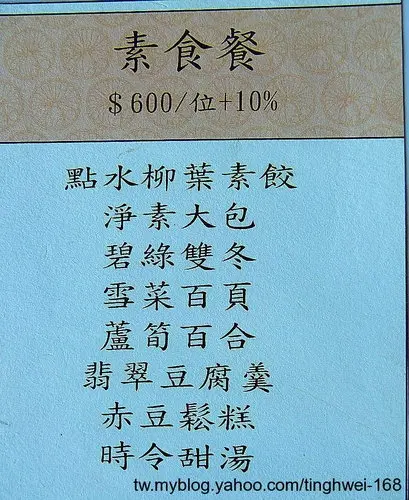 素食餐
$600/位+10%
點水柳葉素餃
淨素大包
碧綠雙冬
雪菜百頁
蘆筍百合
翡翠豆腐羹
赤豆鬆糕
時令甜湯
tw.myblog.yahoo.com/tinghwei-168